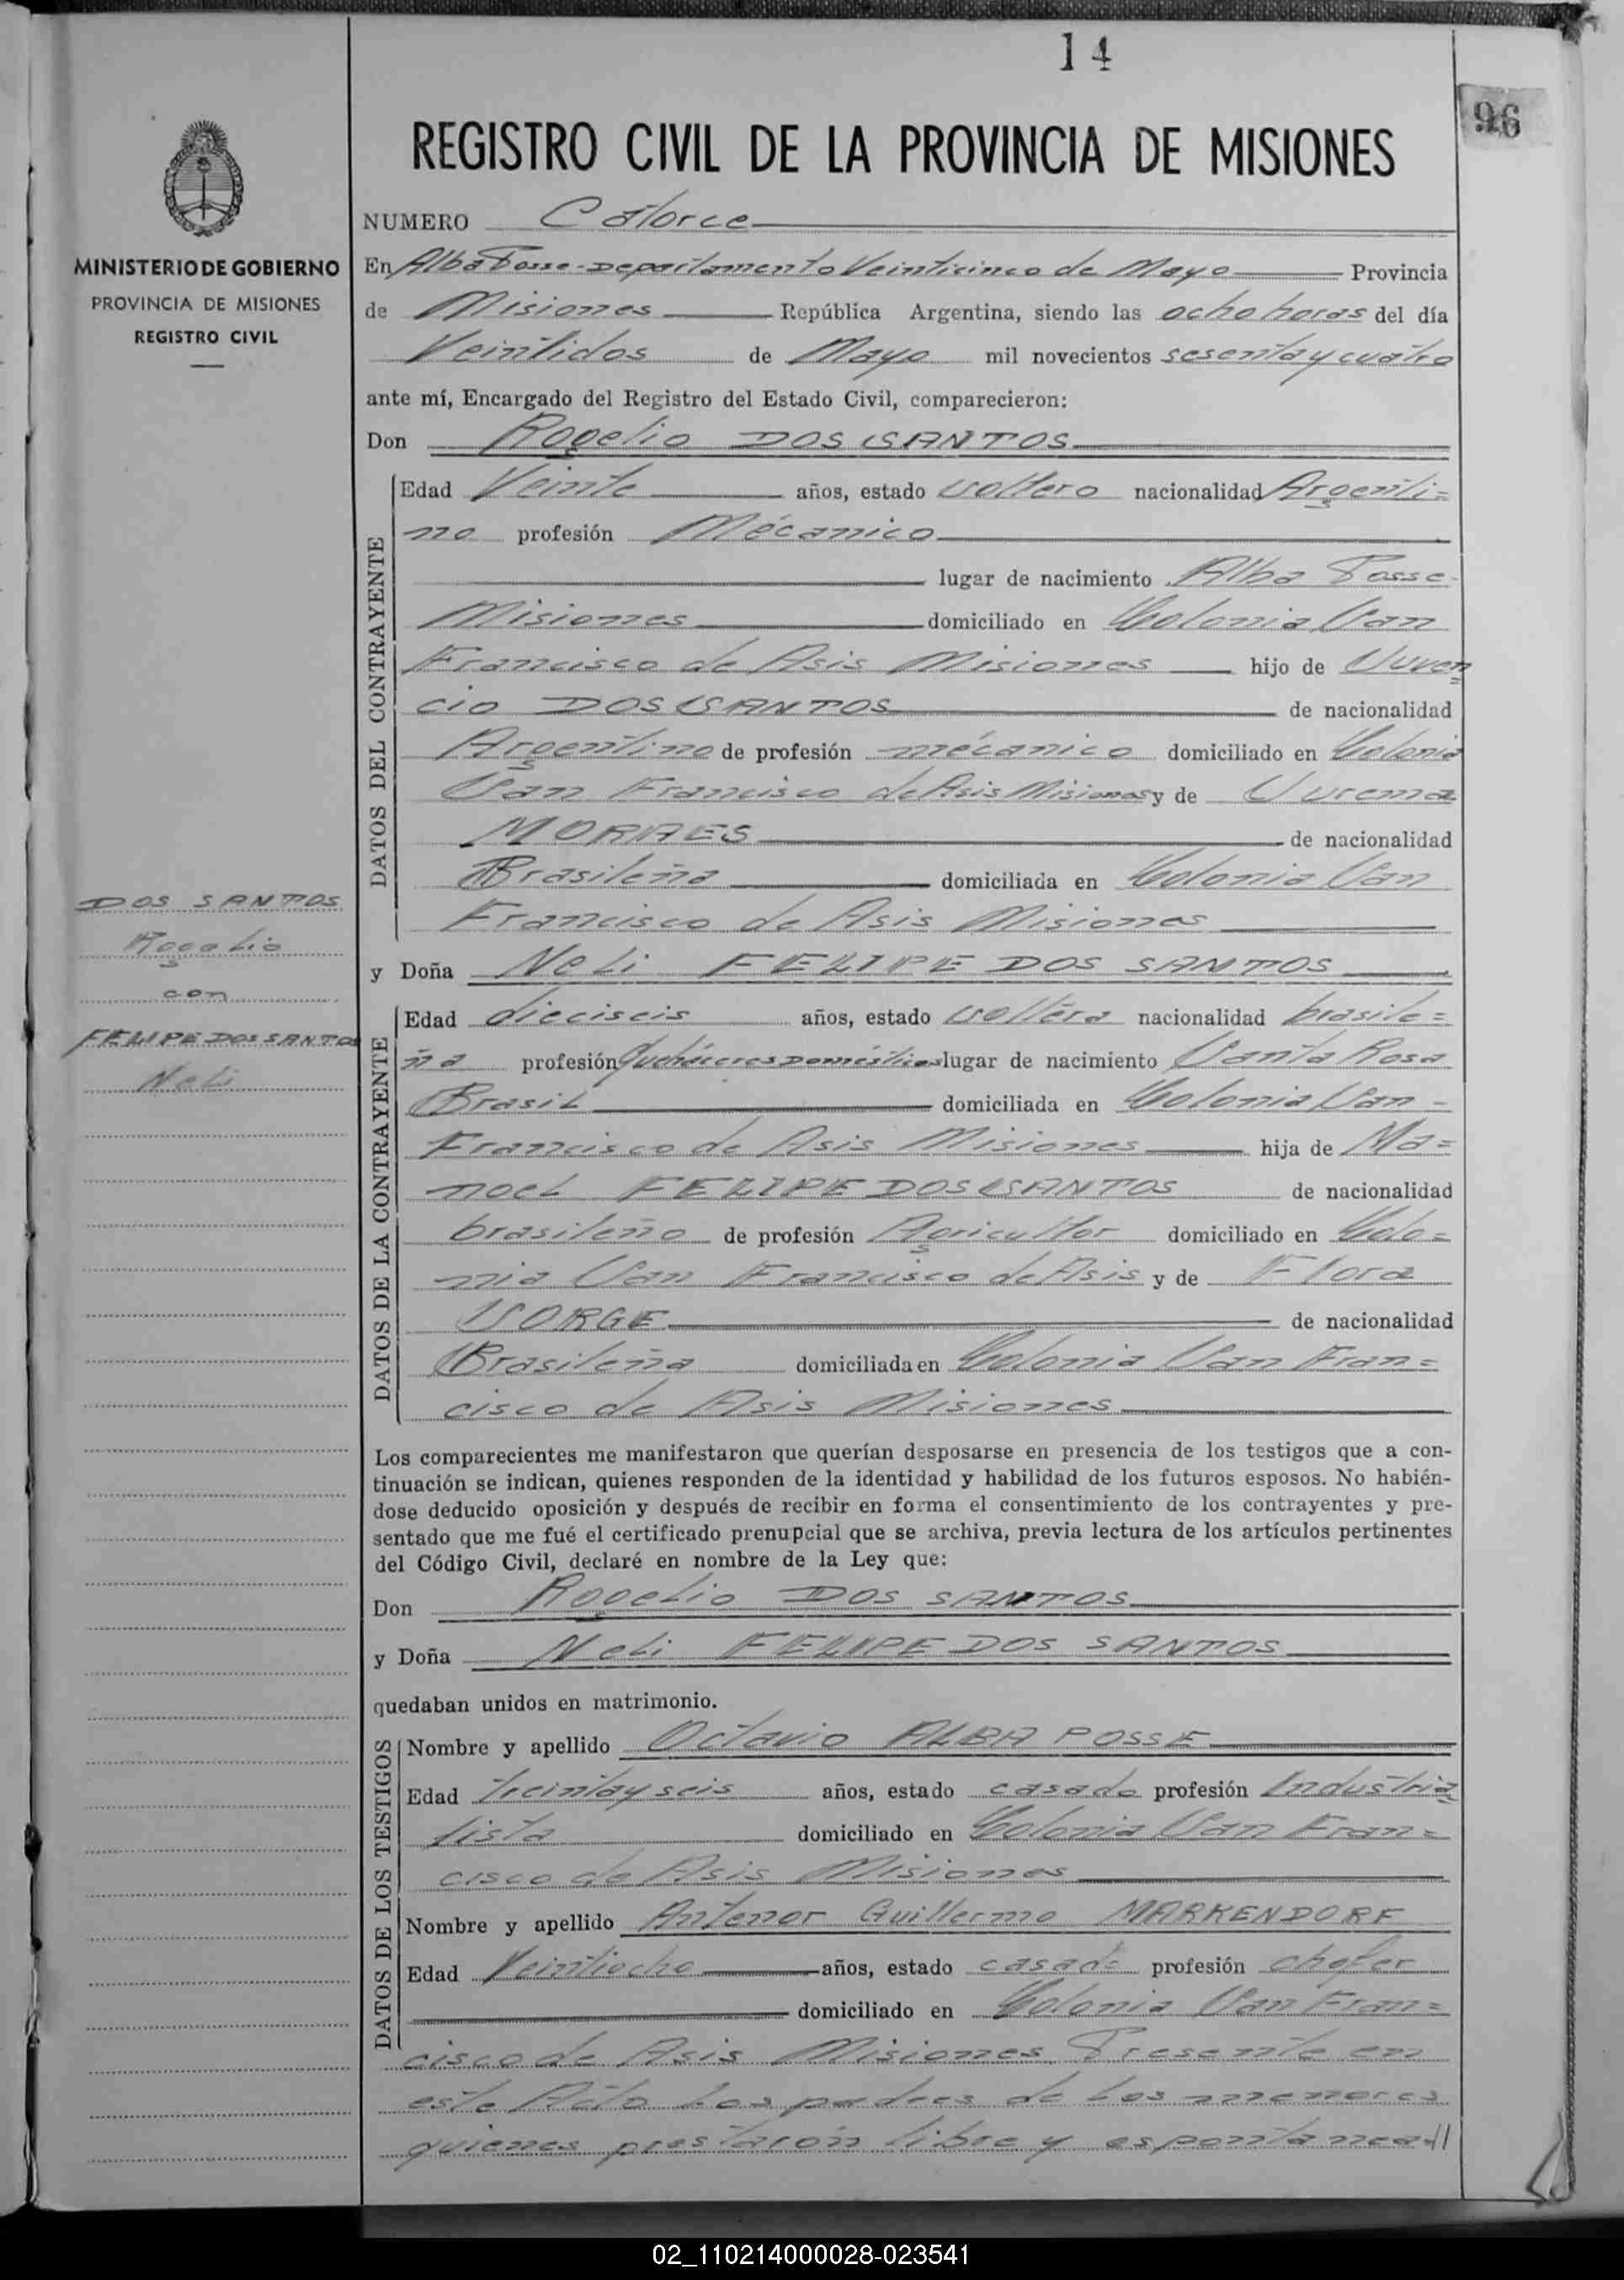 14
96
REGISTRO CIVIL DE LA PROVINCIA DE MISIONES
MINISTERIO DE GOBIERNO
PROVINCIA DE MISIONES
REGISTRO CIVIL
DOS SANTOS
Rogelio
con
FELIPE DOS SANTOS
Neli
NUMERO Catorce
En Alba Posse - Departamento Veinticinco de Mayo Provincia
de Misiones República Argentina, siendo las ocho horas del día
Veintidos de Mayo mil novecientos sesenta y cuatro
ante mí, Encargado del Registro del Estado Civil, comparecieron:
Don Rogelio DOS SANTOS
DATOS DEL CONTRAYENTE
Edad Veinte años, estado soltero nacionalidad Argenti=
no profesión Mécanico
lugar de nacimiento Alba Posse-
Misiones domiciliado en Colonia San
Francisco de Asis Misiones hijo de Juven=
cio DOS SANTOS de nacionalidad
Argentino de profesión mécanico domiciliado en Colonia
San Francisco de Asis Misiones y de Jurema
MORAES de nacionalidad
Brasileña domiciliada en Colonia San
Francisco de Asis Misiones
y Doña Neli FELIPE DOS SANTOS
DATOS DE LA CONTRAYENTE
Edad dieciseis años, estado soltera nacionalidad brasile=
ña profesión Quehaceres Domésticos lugar de nacimiento Santa Rosa
Brasil domiciliada en Colonia San -
Francisco de Asis Misiones hija de Ma=
noel FELIPE DOS SANTOS de nacionalidad
brasileño de profesión Agricultor domiciliado en Colo=
nia San Francisco de Asis y de Flora
JORGE de nacionalidad
Brasileña domiciliada en Colonia San Fran=
cisco de Asis Misiones
Los comparecientes me manifestaron que querían desposarse en presencia de los testigos que a con-
tinuación se indican, quienes responden de la identidad y habilidad de los futuros esposos. No habién-
dose deducido oposición y después de recibir en forma el consentimiento de los contrayentes y pre-
sentado que me fué el certificado prenupcial que se archiva, previa lectura de los artículos pertinentes
del Código Civil, declaré en nombre de la Ley que:
Don Rogelio DOS SANTOS
y Doña Neli FELIPE DOS SANTOS
quedaban unidos en matrimonio.
DATOS DE LOS TESTIGOS
Nombre y apellido Octavio ALBA POSSE
Edad treintay seis años, estado casado profesión Industria=
lista domiciliado en Colonia San Fran=
cisco de Asis Misiones
Nombre y apellido Antenor Guillermo MARKENDORF
Edad Veintiocho años, estado casado profesión chofer
domiciliado en Colonia San Fran=
cisco de Asis Misiones. Presente en
este Acto los padres de los menores
quienes prestarón libre y espontanea-//
02_110214000028-023541